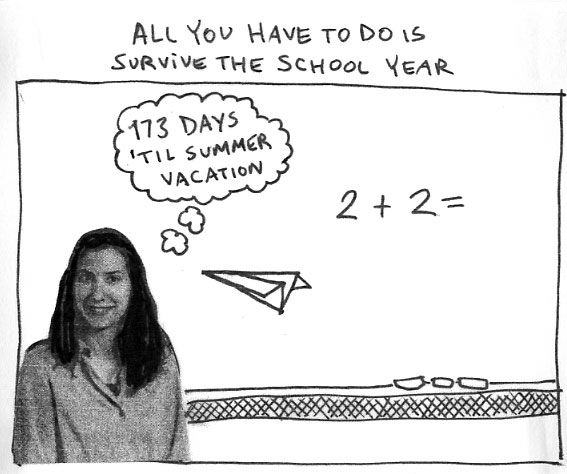 ALL YOU HAVE TO DO IS
SURVIVE THE SCHOOL YEAR
173 DAYS
'TIL SUMMER
VACATION
2 + 2 =